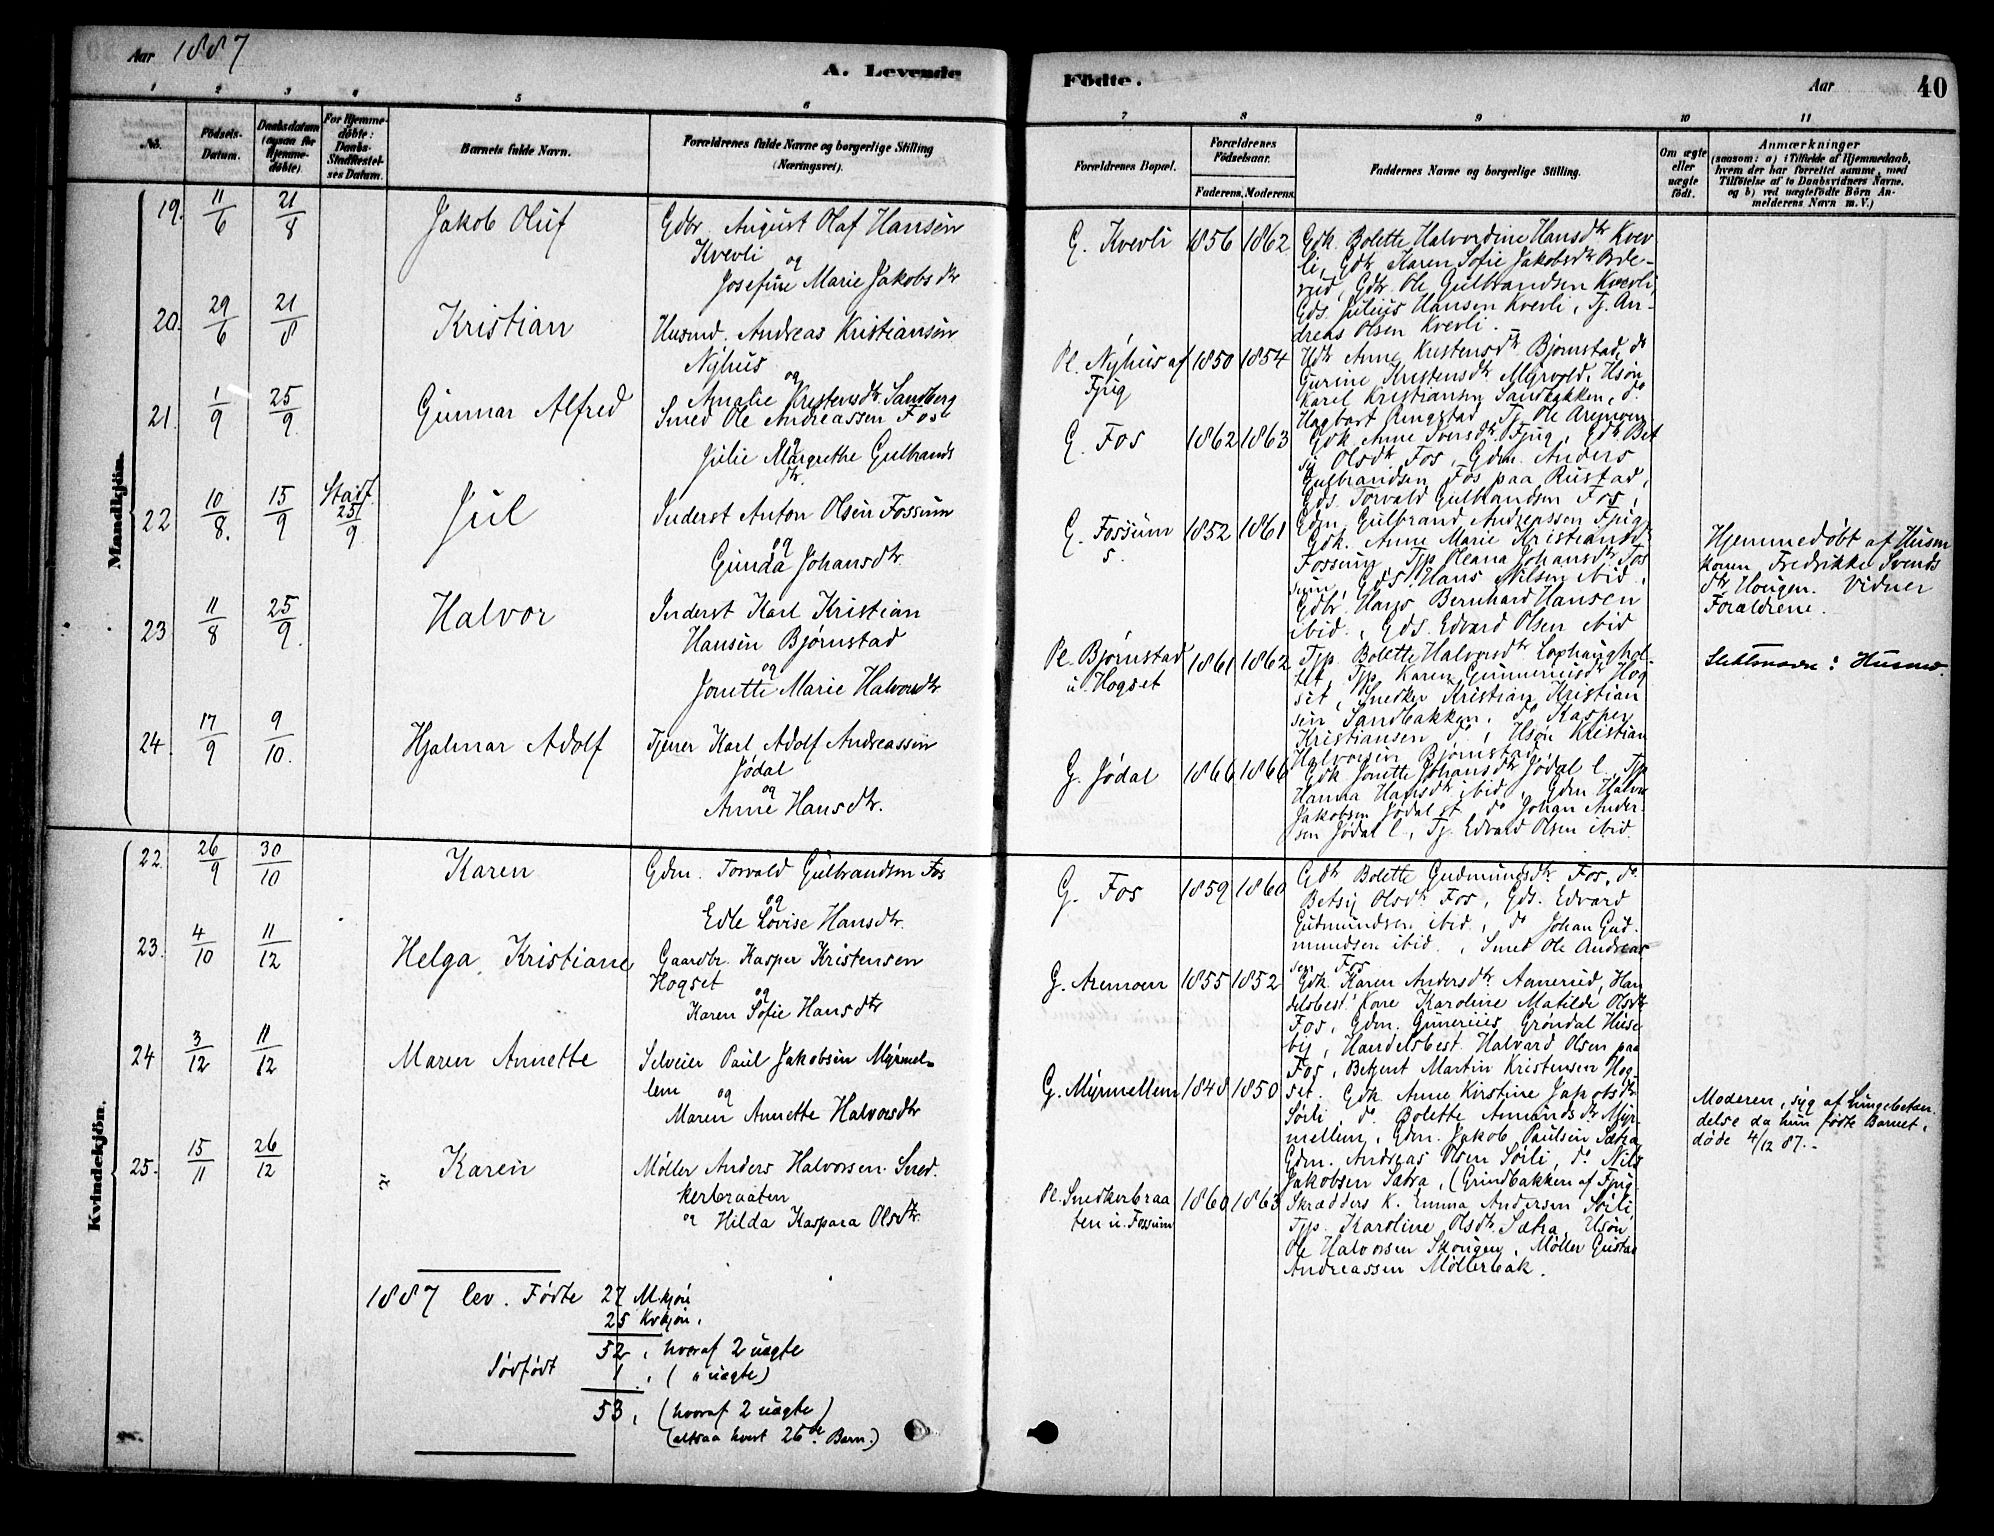 Aar 1887
A. Levende
Fødte.
Aar
40
1 2 3 4 5 6 7 8 9 10 11
No.
Fødsels-Datum.
Daabsdatum (ogsaa for Hjemmedøbte).
For Hjemmedøbte: Daabs-Stadfæstelses Datum.
Barnets fulde Navn.
Forældrenes fulde Navne og borgerlige Stilling (Næringsvei).
Forældrenes Bopæl.
Forældrenes Fødselsaar.
Faderens. Moderens.
Faddernes Navne og borgerlige Stilling.
Om ægte eller uægte født.
Anmærkninger
(saasom: a) i Tilfælde af Hjemmedaab,
hvem der har forrettet samme, med
Tilføielse af to Daabsvidners Navne,
og b) ved uægtefødte Børn An-
melderens Navn m. V.)
Mandkjön.
19. 11/6 21/8 Jakob Oluf
Gdbr. August Olaf Hansen
Kvevli
og
Josefine Marie Jakobsdtr
G. Kvevli 1856 1862
Gdk. Bolette Halvordine Hansdtr Kvev
li, Gdk Karen Sofie Jakobsdtr Bøle-
rud, Gdbr. Ole Gulbrandsen Kvevli,
Gds. Julius Hansen Kvevli, Tj. An-
dreas Olsen Kvevli.
20. 29/6 21/8 Kristian
Husmd. Andreas Kristiansen
Nyhus
og
Amalie Kristensdtr. Sandberg
Pl. Nyhus af
Fjug
1850 1854
Hdk Anne Kristensdtr Bjørnstad, do
Gurine Kristensdtr Myrvold, Hsøn
Karel Kristiansen Sandbakken, do
Hagbart Ringstad, Tj. Ole Aremoen
21. 1/9 25/9 Gunnar Alfred
Smed Ole Andreassen Fos
og
Julie Margrethe Gulbrands
dtr.
G. Fos 1862 1863
Gdk Anne Iversdtr. Fjug, Gdk Bet
sy Olsdtr Fos, Gdm. Anders
Gulbrandsen Fos paa Rustad,
Gds. Torvald Gulbrandsen Fos,
Gdm. Gulbrand Andreassen Fjug
22 10/8. 15/9 Stadf. 25/9 Jul
Inderst Anton Olsen Fossum
og
Gunda Johansdtr.
G. Fossum
s.
1852 1861
Gdk. Anne Marie Kristiansdtr
Fossum, Tjp Oleana Johansdtr Fos
sum, Gds. Hans Nilsen ibid,
Gdbr. Hans Bernhard Hansen
ibid., Gds. Edvard Olsen ibid
Hjemmedøbt af Husm
konen Fredrikke Svends
dtr Hougen. Vidner
Forældrene.
23 11/8 25/9. Halvor
Inderst Karl Kristian
Hansen Bjørnstad
og
Jonette Marie Halvorsdtr
Pl. Bjørnstad
u. Hogset
1861 1862
Tjp Bolette Halvorsdtr
Tjp Karen Gunneriusdtr Hog
set, Snedker Kristian Kristian
sen Sandbakken, do Kasper
Kristiansen do, Hsøn Kristian
Halvorsen Bjørnstad
24. 17/9 9/10. Hjalmar Adolf
Tjener Karl Adolf Andreassen
Jødal
og
Anne Hansdtr.
G. Jødal 1866 1866
Gdk Jonette Johansdtr Jødal l. Tjp
Hanna Hansdtr ibid, Gdm Halvor
Jakobsen Jødal st. do Johan Ander-
sen Jødal l, Tj. Edvard Olsen ibid.
Kvindekjön.
22. 26/9 30/10 Karen
Gdm. Torvald Gulbrandsen Fos
og
Edle Lovise Hansdtr.
G. Fos 1859 1860
Gdk Bolette Gudmundsdtr. Fos, do
Betsy Olsdtr Fos, Gds. Edvard
Gudmundsen ibid, do Johan Gud-
mundsen ibid., Smed Ole Andreas
sen Fos
23. 4/10 11/12 Helga Kristiane
Gaardbr. Kasper Kristensen
Hogset
og
Karen Sofie Hansdtr
G. Aremoen 1855 1852
Gdk. Karen Andersdtr Aanerud, Han
delsbest. Kone Karoline Matilde Olsdtr
Fos, Gdm. Gunerius Grøndal Huse
by, Handelsbest. Halvard Olsen paa
Fos, Betjent Martin Kristensen Hog-
set.
24 3/12 11/12 Maren Annette
Selveier Paul Jakobsen Myrmel-
lem
og
Maren Annette Halvorsdtr
G. Myrmellem 1848 1850
Gdk Anne Kirstine Jakobsdtr
Søili do Bolette Amundsdtr Myr-
mellem, Gdm. Jakob Paulsen Sætra
Gdm. Andreas Olsen Søili, do Nils
Jakobsen Sætra, (Grindbakken af Fjug.
Moderen, syg af Lungebetæn
delse da hun fødte Barnet,
døde 4/12 87.-
25. 15/11 26/12 Karen
Møller Anders Halvorsen Sned.
kerbraaten
og Hilda Kaspara Olsdtr.
Pl. Snedkerbraa
ten u. Fossum
1860 1863
Skrædders K. Emma Andersen Søili,
Tjp. Karoline Olsdtr. Sætra, Hsøn
Ole Halvorsen Skougen, Møller Gustav
Andreassen Møllerbak.
1887 lev. Fødte 27 M.kjøn
25 Kvkjøn.
52, hvoraf 2 uægte
Dødfødt 1, ( „ uægte)
53, (hvoraf 2 uægte)
(altsaa hvert 26de. Barn.)